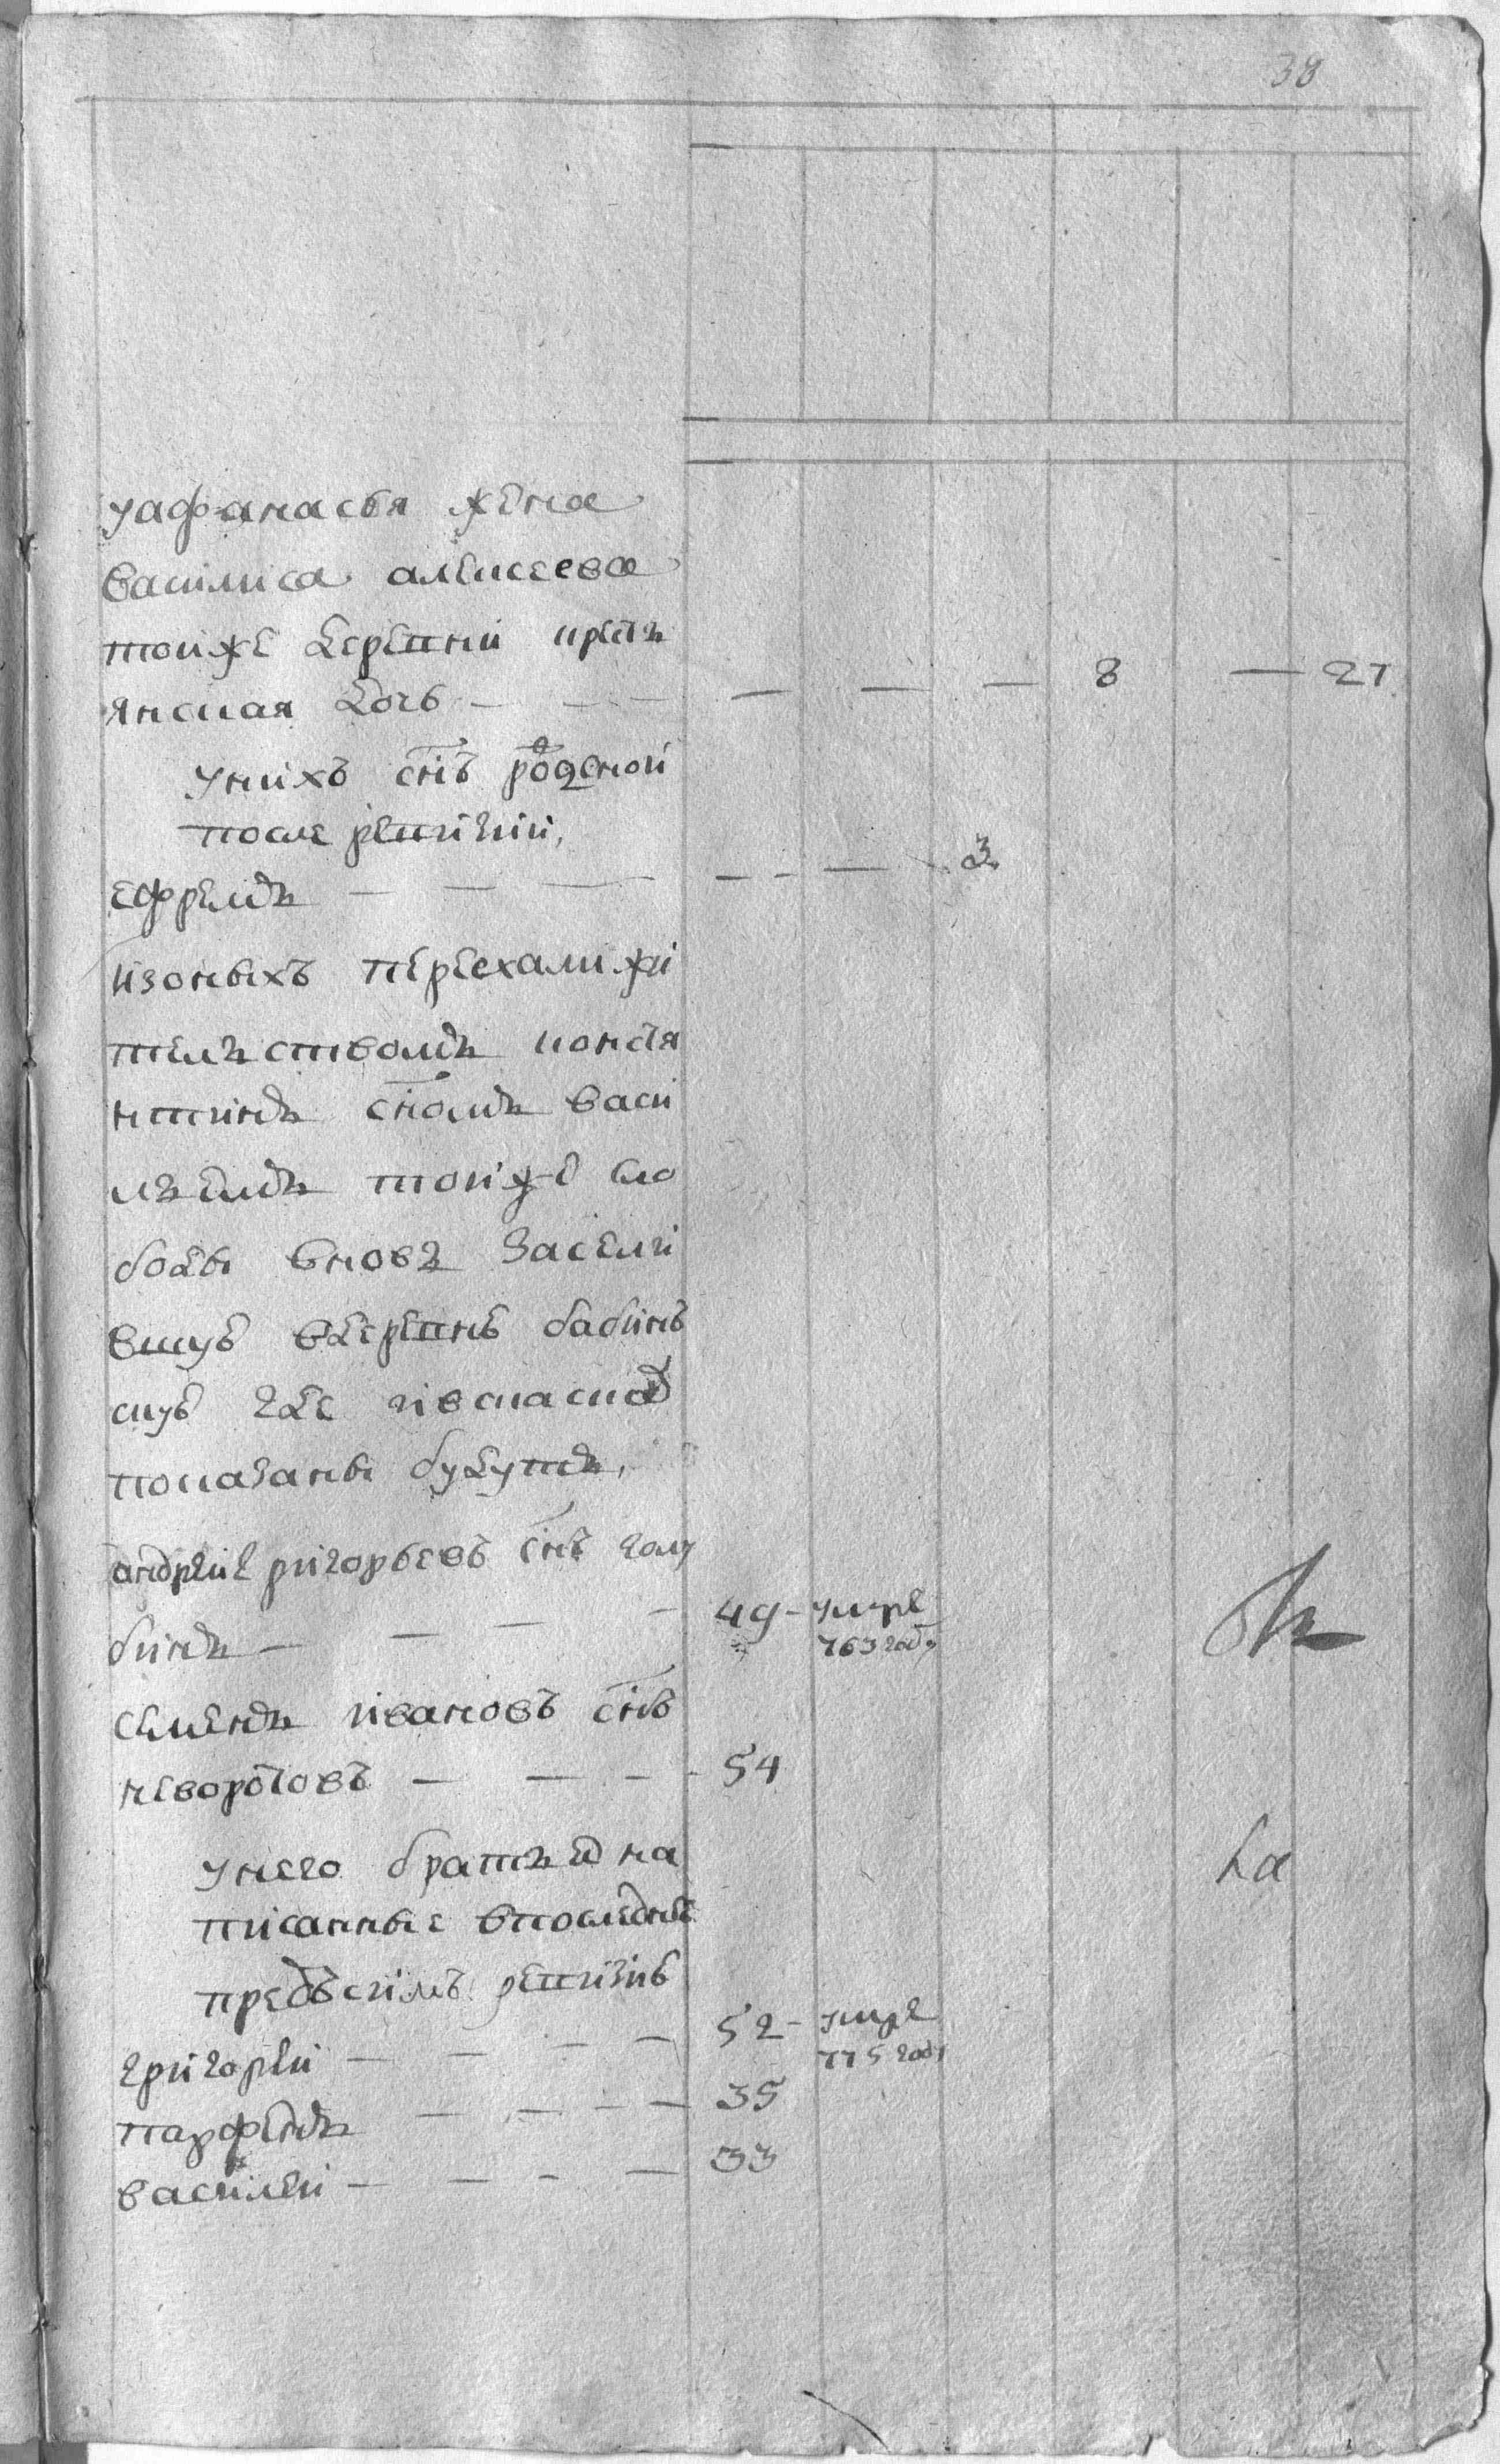 38
уафанасья жена
василиса алексеева
тойже деревни кресть
янская дочь — — — — — — 8 — 21
унихъ снъ рожденой
после ревизии,
ефремъ — — — — — — 3
изоныхъ переехали жи
тельствомъ констя
нтинъ сномъ васи
льемъ тойже сло
боды вновь засели
вшую вдеревню бабин
скую где ивскаскъ
показаны будутъ,
андрей григорьевъ снъ голу
бинъ — — — — 49 - умре
763 году
семенъ ивановъ снъ
неворотовъ — — — 54
унего братьев на
писанные впоследней
предъсимъ ревизии
григорей — — — — 52 - умре
775 году
парфенъ — — — — 35
василей — — — — 33